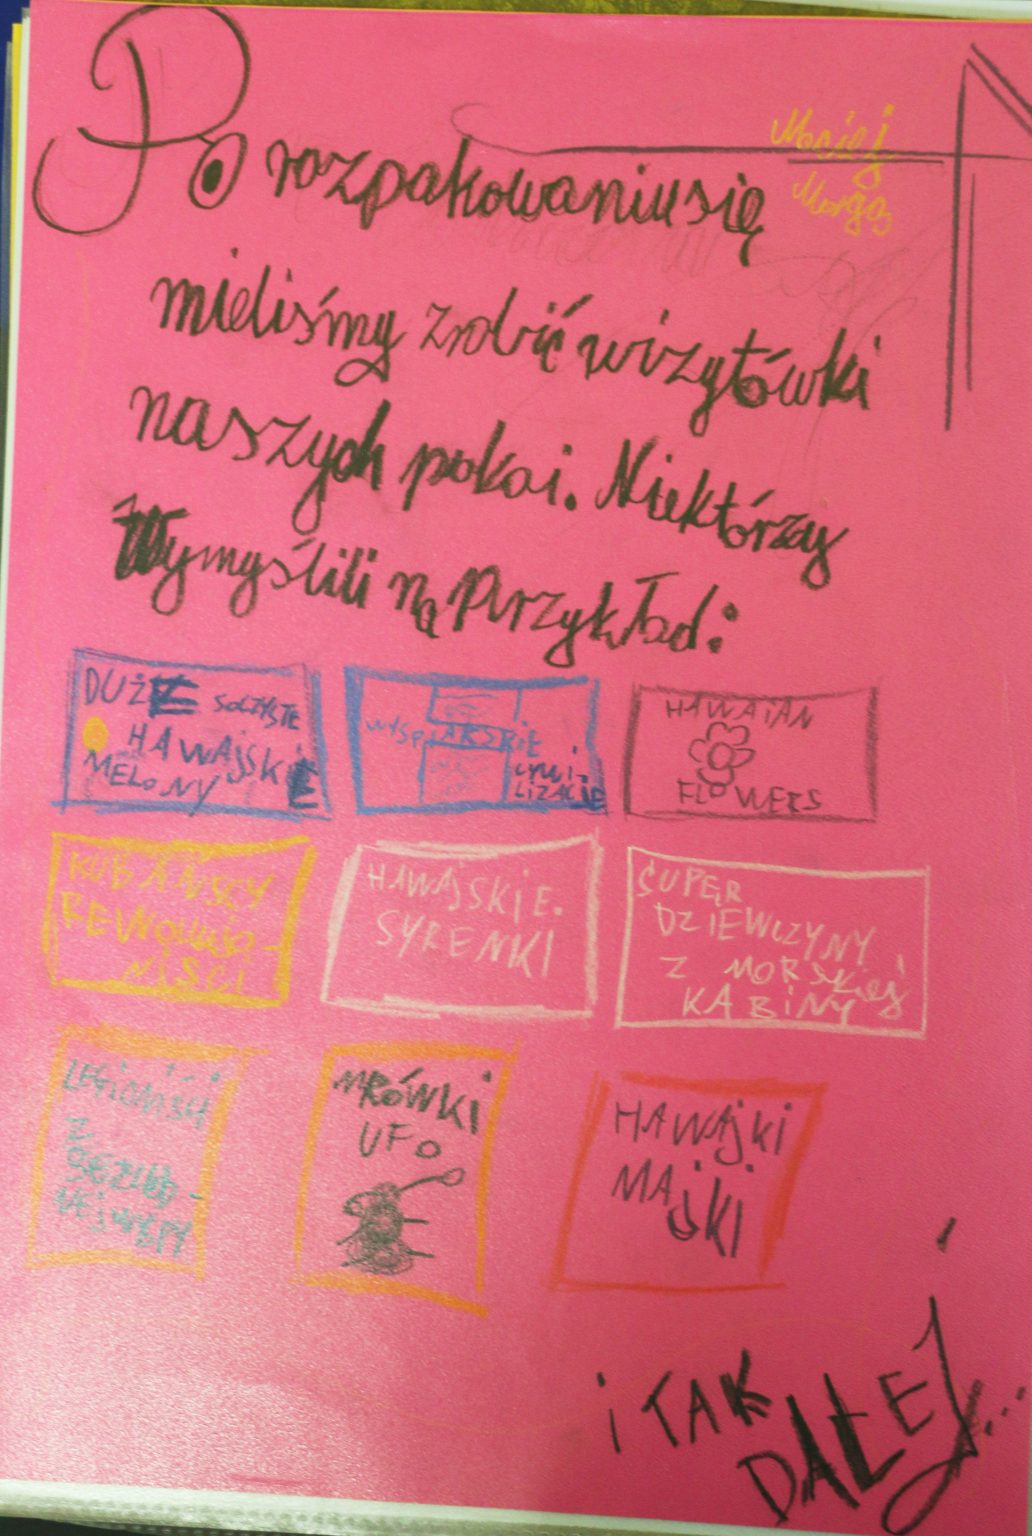 Maciej
Po rozpakowaniu się
mieliśmy zrobić wizytówki
naszych pokoi. Niektórzy
Wymyślili na przykład:
DUŻE SOCZYSTE
HAWAJSKIE
MELONY
WYSPIARSKIE
CYWI-
LIZACJE
HAWAIAN
FLOWERS
KUBAŃSCY
REWOLUCJO-
NIŚCI
HAWAJSKIE.
SYRENKI
SUPER
DZIEWCZYNY
Z MORSKIEJ
KABINY
LEGIONIŚCI
Z
BEZLUD-
NEJ WYSPY
MRÓWKI
UFO
HAWAJKI
MAJKI
i TAK
DALEJ...